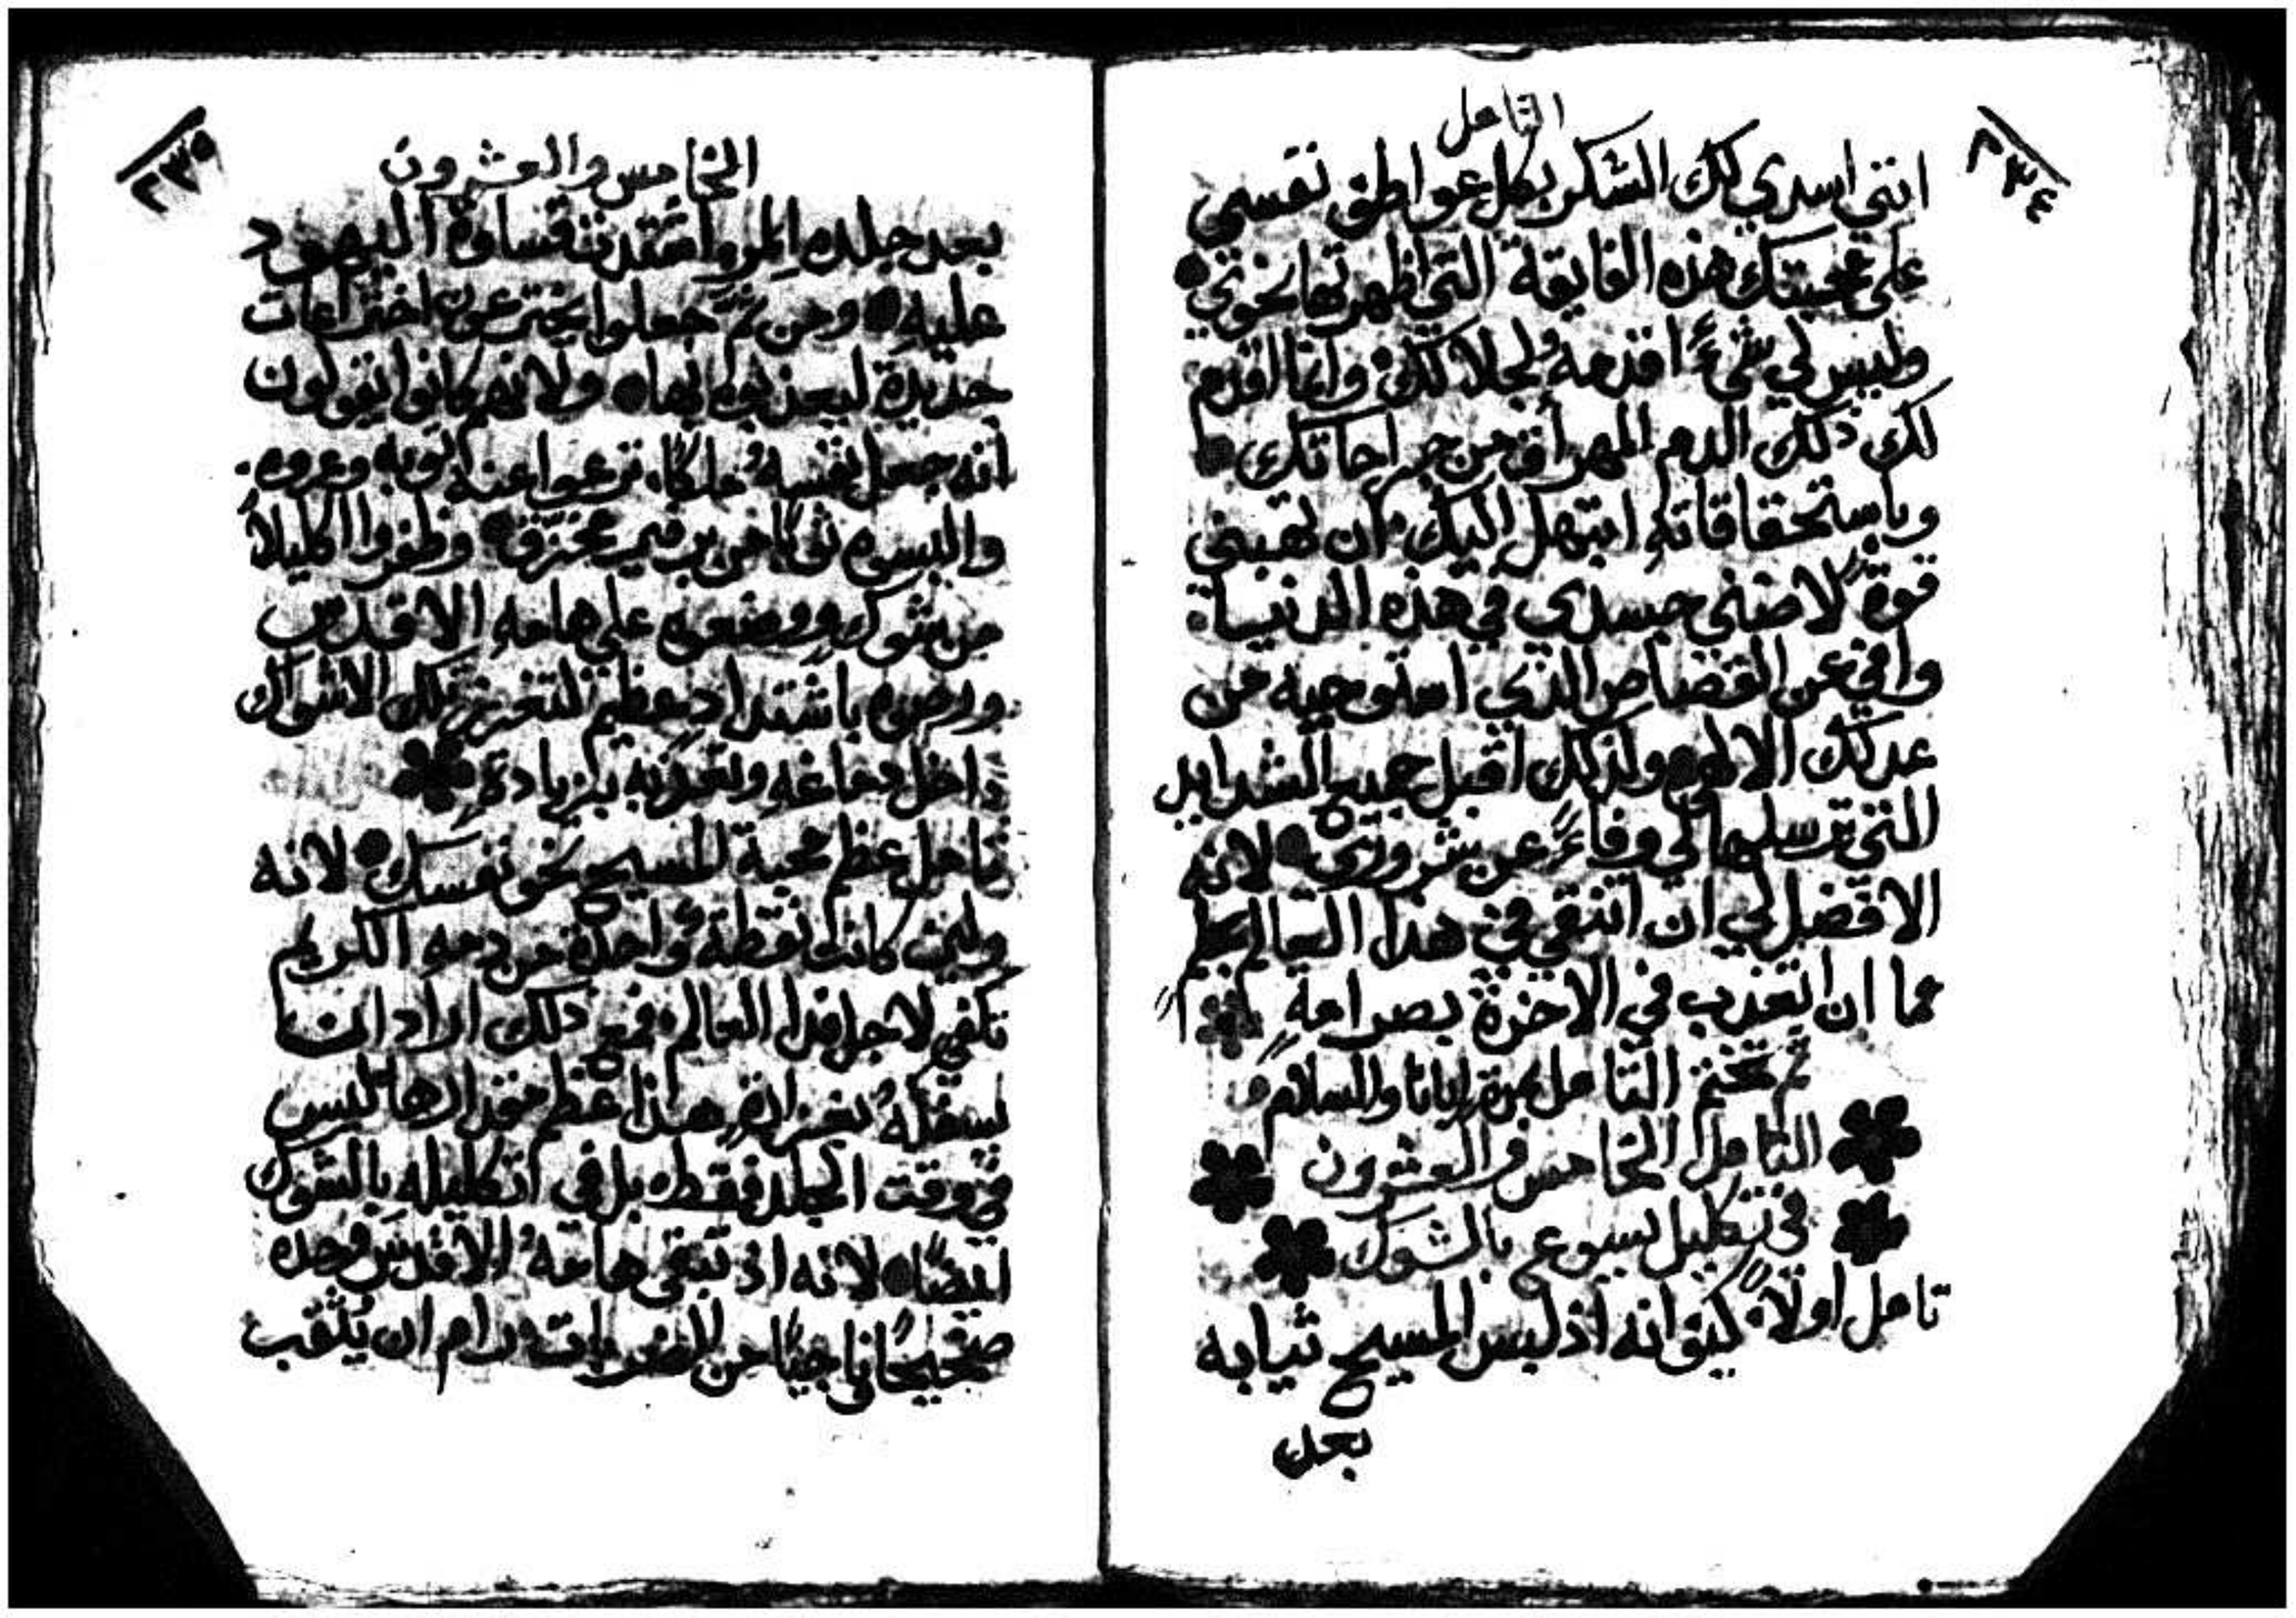 ٢٣٤
التامل
انني اسدي لك الشكر بكل عواطف نفسي
على محبتك هذه الفايقة التي اظهرتها نحوي
وليس لي شيءً اقدمه لجلالتك وانما اقدم
لك ذلك الدم المهراق من جراحاتك
وباستحقاقاته ابتهل اليك ان تهبني
قوة لاضني جسدي في هذه الدنيا
وافي عن القصاص الذي استوجبه من
عدلك الالهي ولذلك اقبل جميع الشدايد
التي ترسلها لي وفاءً عن شروري لانه
الافضل لي ان اتنقى في هذا العالم
مما ان اتعذب في الاخرة بصرامةٍ
ثم تختم التامل بمرة ابانا والسلام
التامل الخامس والعشرون
في تكليل يسوع بالشوك
تامل اولاً كيف انه اذ لبس المسيح ثيابه
بعد
٢٣٥
الخامس والعشرون
بعد جلده المر اشتدت قساوة اليهود
عليه ومن ثمَّ جعلوا يخترعون اختراعات
جديدة ليعذبوه بها ولانهم كانوا يقولون
انه جعل نفسه ملكًا نزعوا عنه ثوبه وعروه
والبسوه ثوبًا من برفير ممزق وظفروا اكليلاً
من شوك ووضعوه على هامه الاقدس
ورصوه باشتداد عظيم لتغرز تلك الاشواك
داخل دماغه وتعذبه بزيادةٍ
تامل عظم محبة المسيح نحو نفسك لانه
ولين كانت نقطة واحدة من دمه الكريم
تكفي لاجل فدا العالم فمع ذلك اراد ان
يسفكه بغزارةٍ هذا عظم مقدارها ليس
في وقت الجلد فقط بل في تكليله بالشوك
ايضًا لانه اذ تبقى هامته الاقدس وحده
صحيحًا ناجيًا من الضربات رام ان يُثقب